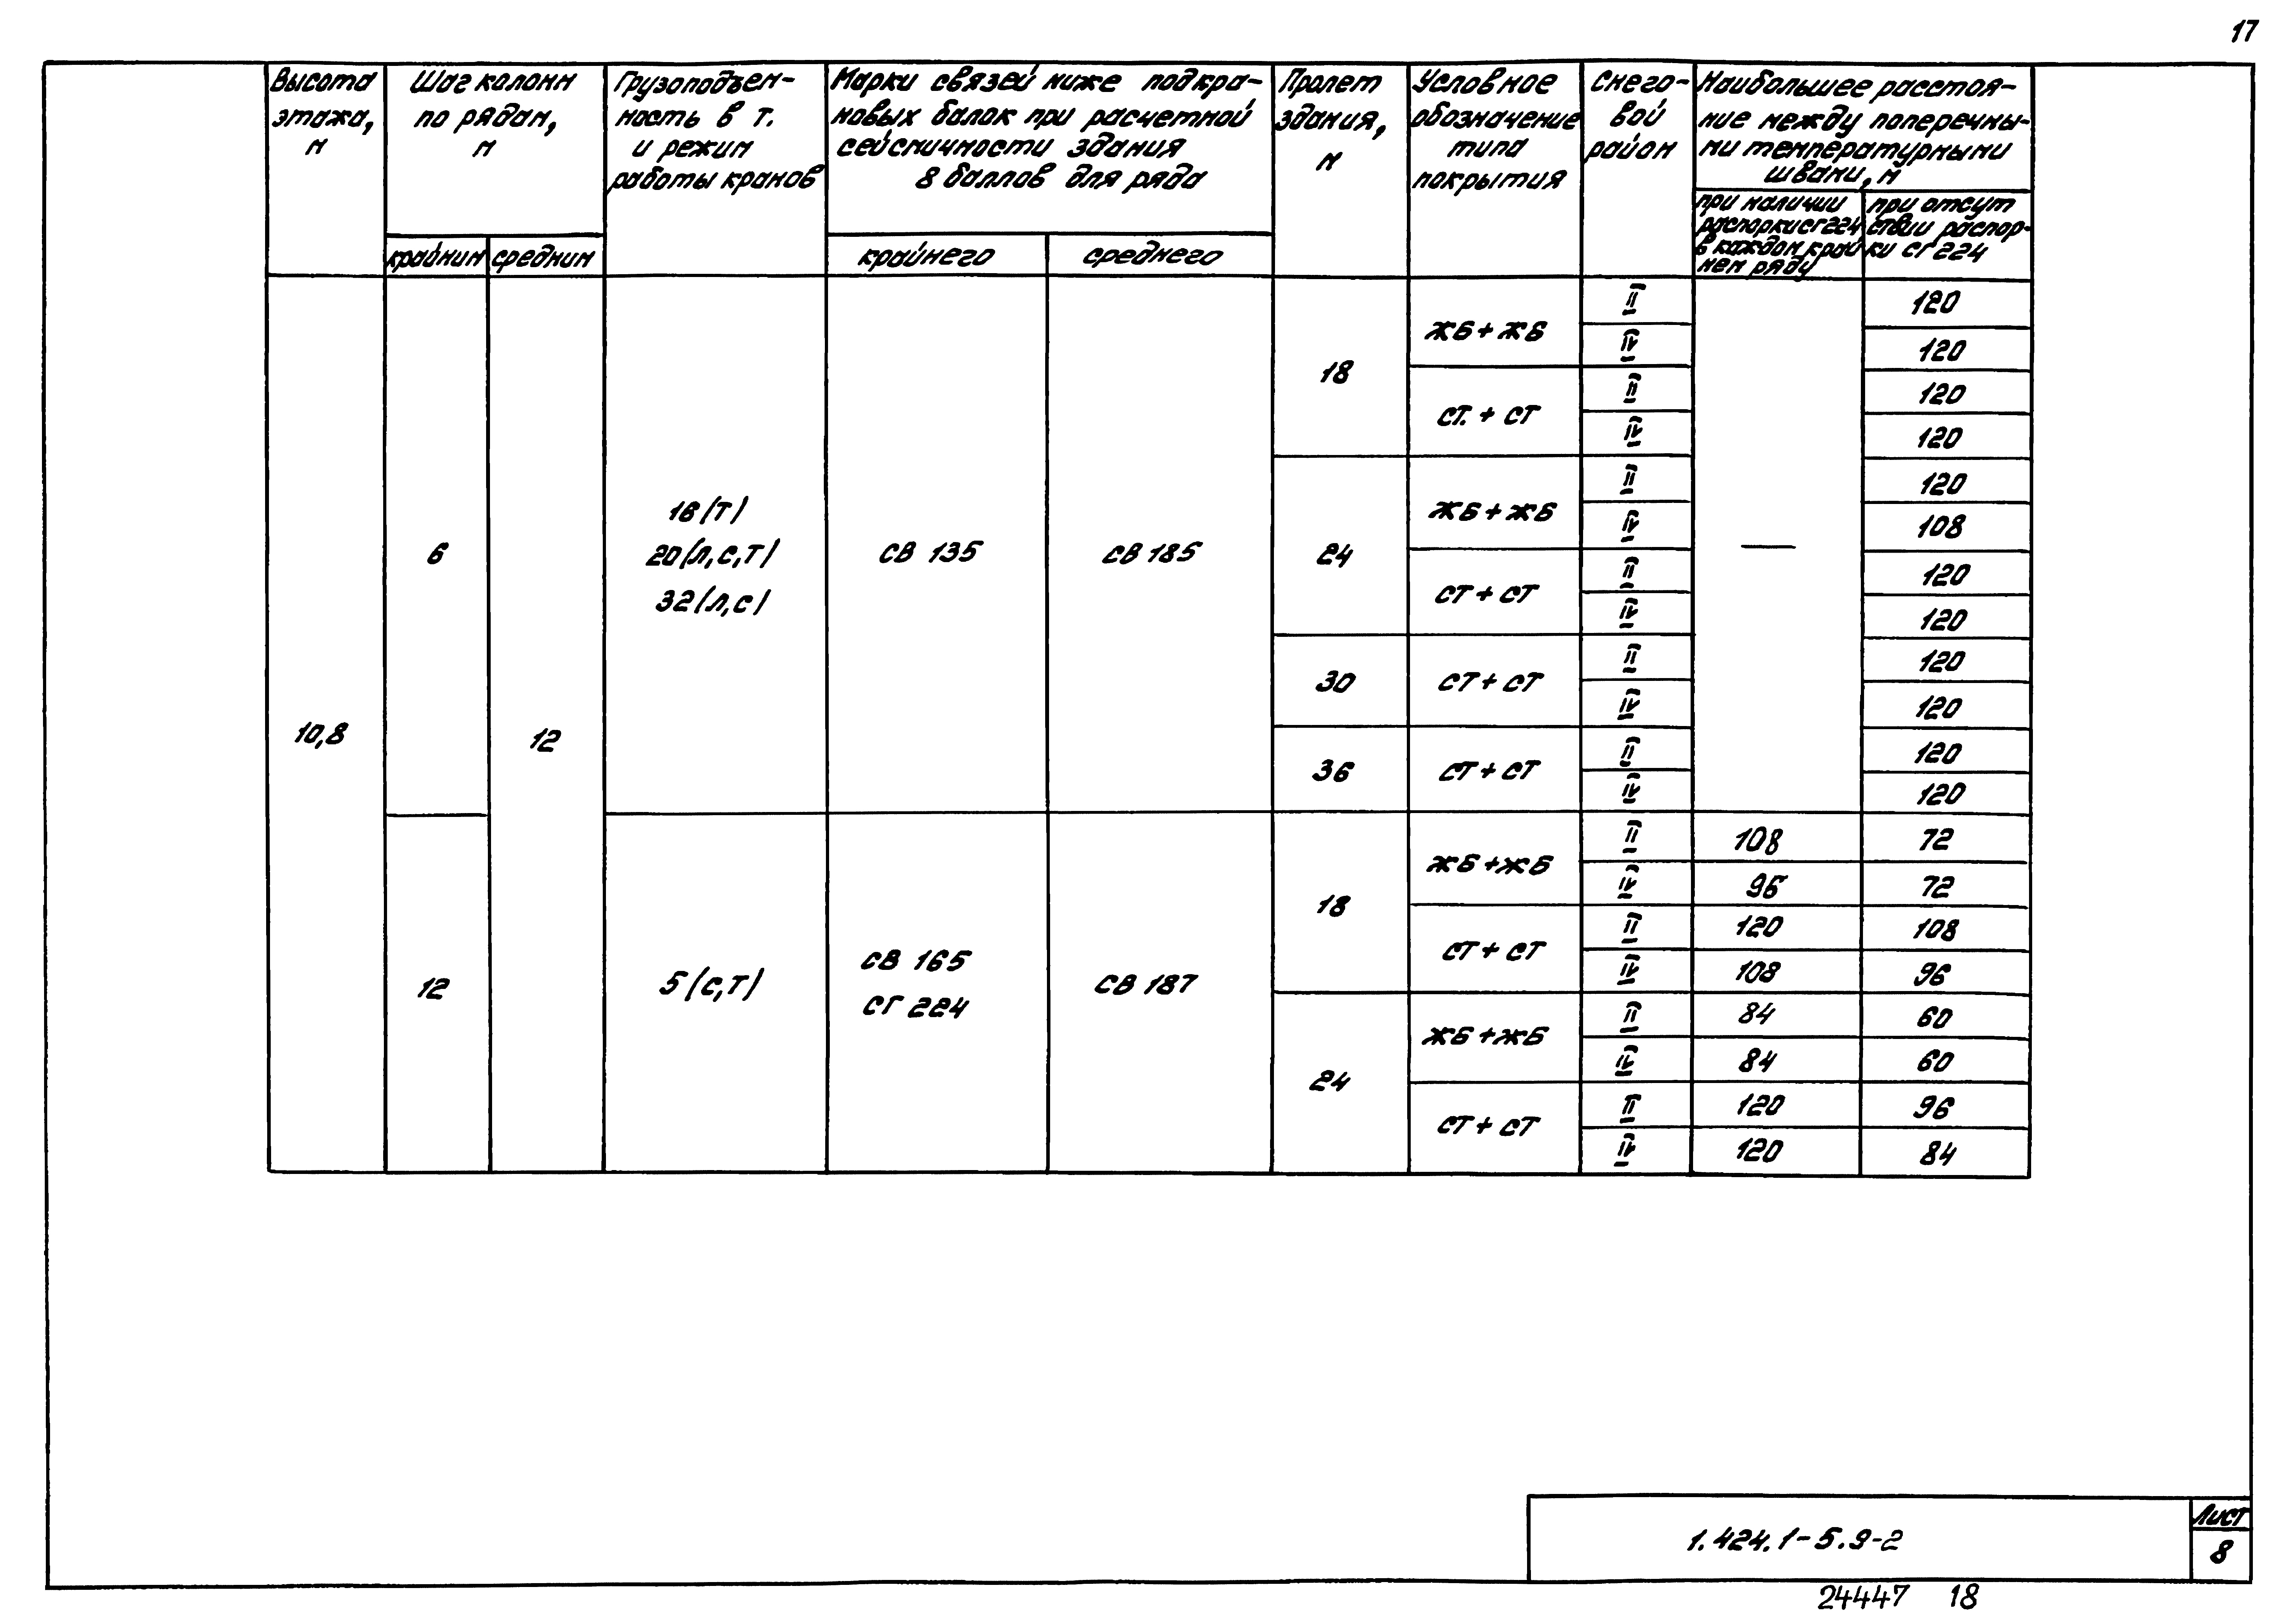 17
Высота этажа, м
Шаг колонн по рядам, м
крайним
средним
Грузоподъем-
ность в т.
и режим
работы кранов
Марки связей ниже подкра-
новых балок при расчетной
сейсмичности здания
8 баллов для ряда
крайнего
среднего
Пролет
здания,
м
Условное
обозначение
типа
покрытия
Снего-
вой
район
Наибольшее расстоя-
ние между поперечны-
ми температурными
швами, м
при наличии
распорки СГ224
в каждом край
нем ряду
при отсут
ствии распор-
ки СГ224
10,8
6
12
16 (Т)
20 (Л,С,Т)
32 (Л,С)
СВ 135
СВ 185
18
ЖБ + ЖБ
II 120
IV 120
СТ. + СТ
II 120
IV 120
24
ЖБ + ЖБ
II 120
IV 108
—
СТ + СТ
II 120
IV 120
30
СТ + СТ
II 120
IV 120
36
СТ + СТ
II 120
IV 120
12
5 (С,Т)
СВ 165
СГ 224
СВ 187
18
ЖБ + ЖБ
II 108 72
IV 96 72
СТ + СТ
II 120 108
IV 108 96
24
ЖБ + ЖБ
II 84 60
IV 84 60
СТ + СТ
II 120 96
IV 120 84
1.424.1-5.9-2
Лист
8
24447 18